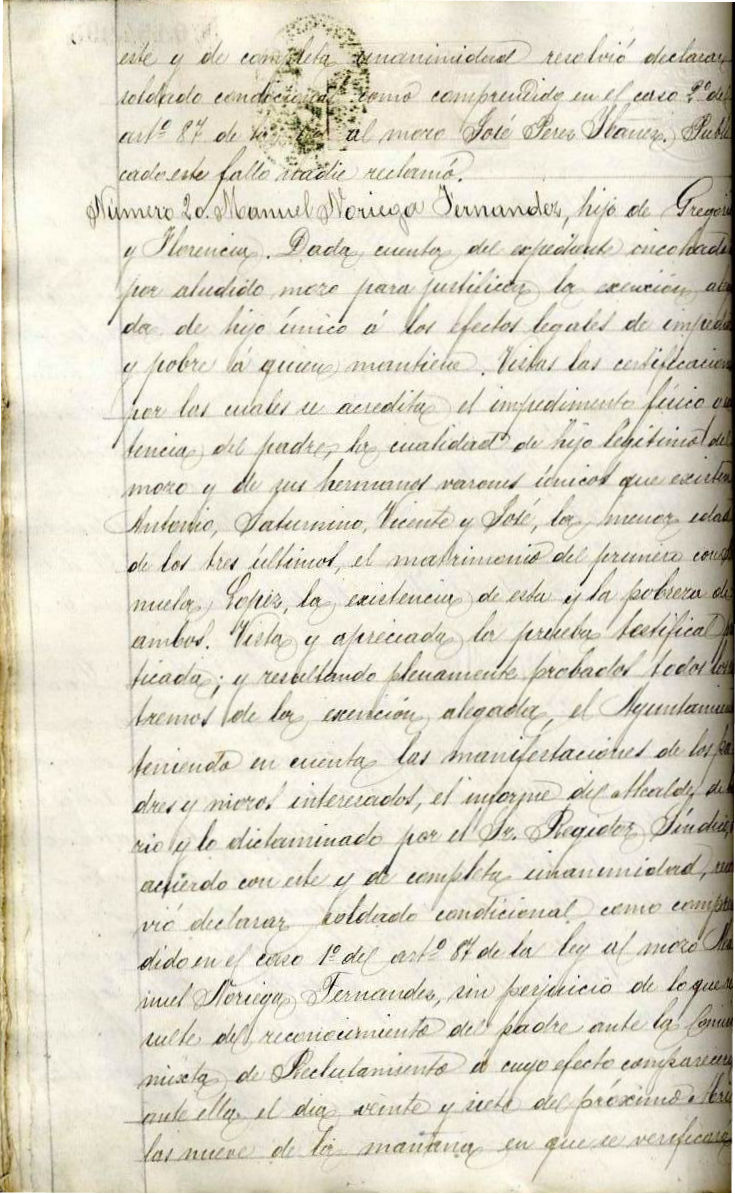 este y de completa unanimidad resolvió declarar
soldado condicional como comprendido en el caso 2º del
artº 87 de la ley al mozo José Perez Ibañez. Publi
cado este fallo nadie reclamó.
Número 20. Manuel Noriega Fernandez, hijo de Gregorio
y Florencia. Dada cuenta del expediente incohado
por aludido mozo para justificar la exención ale
da, de hijo único á los efectos legales de impedi
y pobre á quien mantiene. Vistas las certificacion
por las cuales se acredita el impedimento físico
tencia del padre, la cualidad de hijo legítimo del
mozo y de sus hermanos varones únicos que existen
Antonio, Saturnino, Vicente y José, la menor edad
de los tres últimos, el matrimonio del primero con
nuela Lopez, la existencia de esta y la pobreza de
ambos. Vista y apreciada la prueba testifical
ticada; y resultando plenamente probados todos los
tremos de la exención alegada, el Ayuntamien
teniendo en cuenta las manifestaciones de los pa
dres y mozos interesados, el informe del Alcalde de
rio y lo dictaminado por el Sr. Regidor Síndico,
acuerdo con este y de completa unanimidad, resol
vió declarar soldado condicional como compren
dido en el caso 1º del artº 87 de la ley al mozo Ma
nuel Noriega Fernandez, sin perjuicio de lo que re
sulte del reconocimiento del padre ante la Comision
mixta de Reclutamiento a cuyo efecto comparecerá
ante ella el dia veinte y siete del próximo Abril
las nueve de la mañana en que se verificará